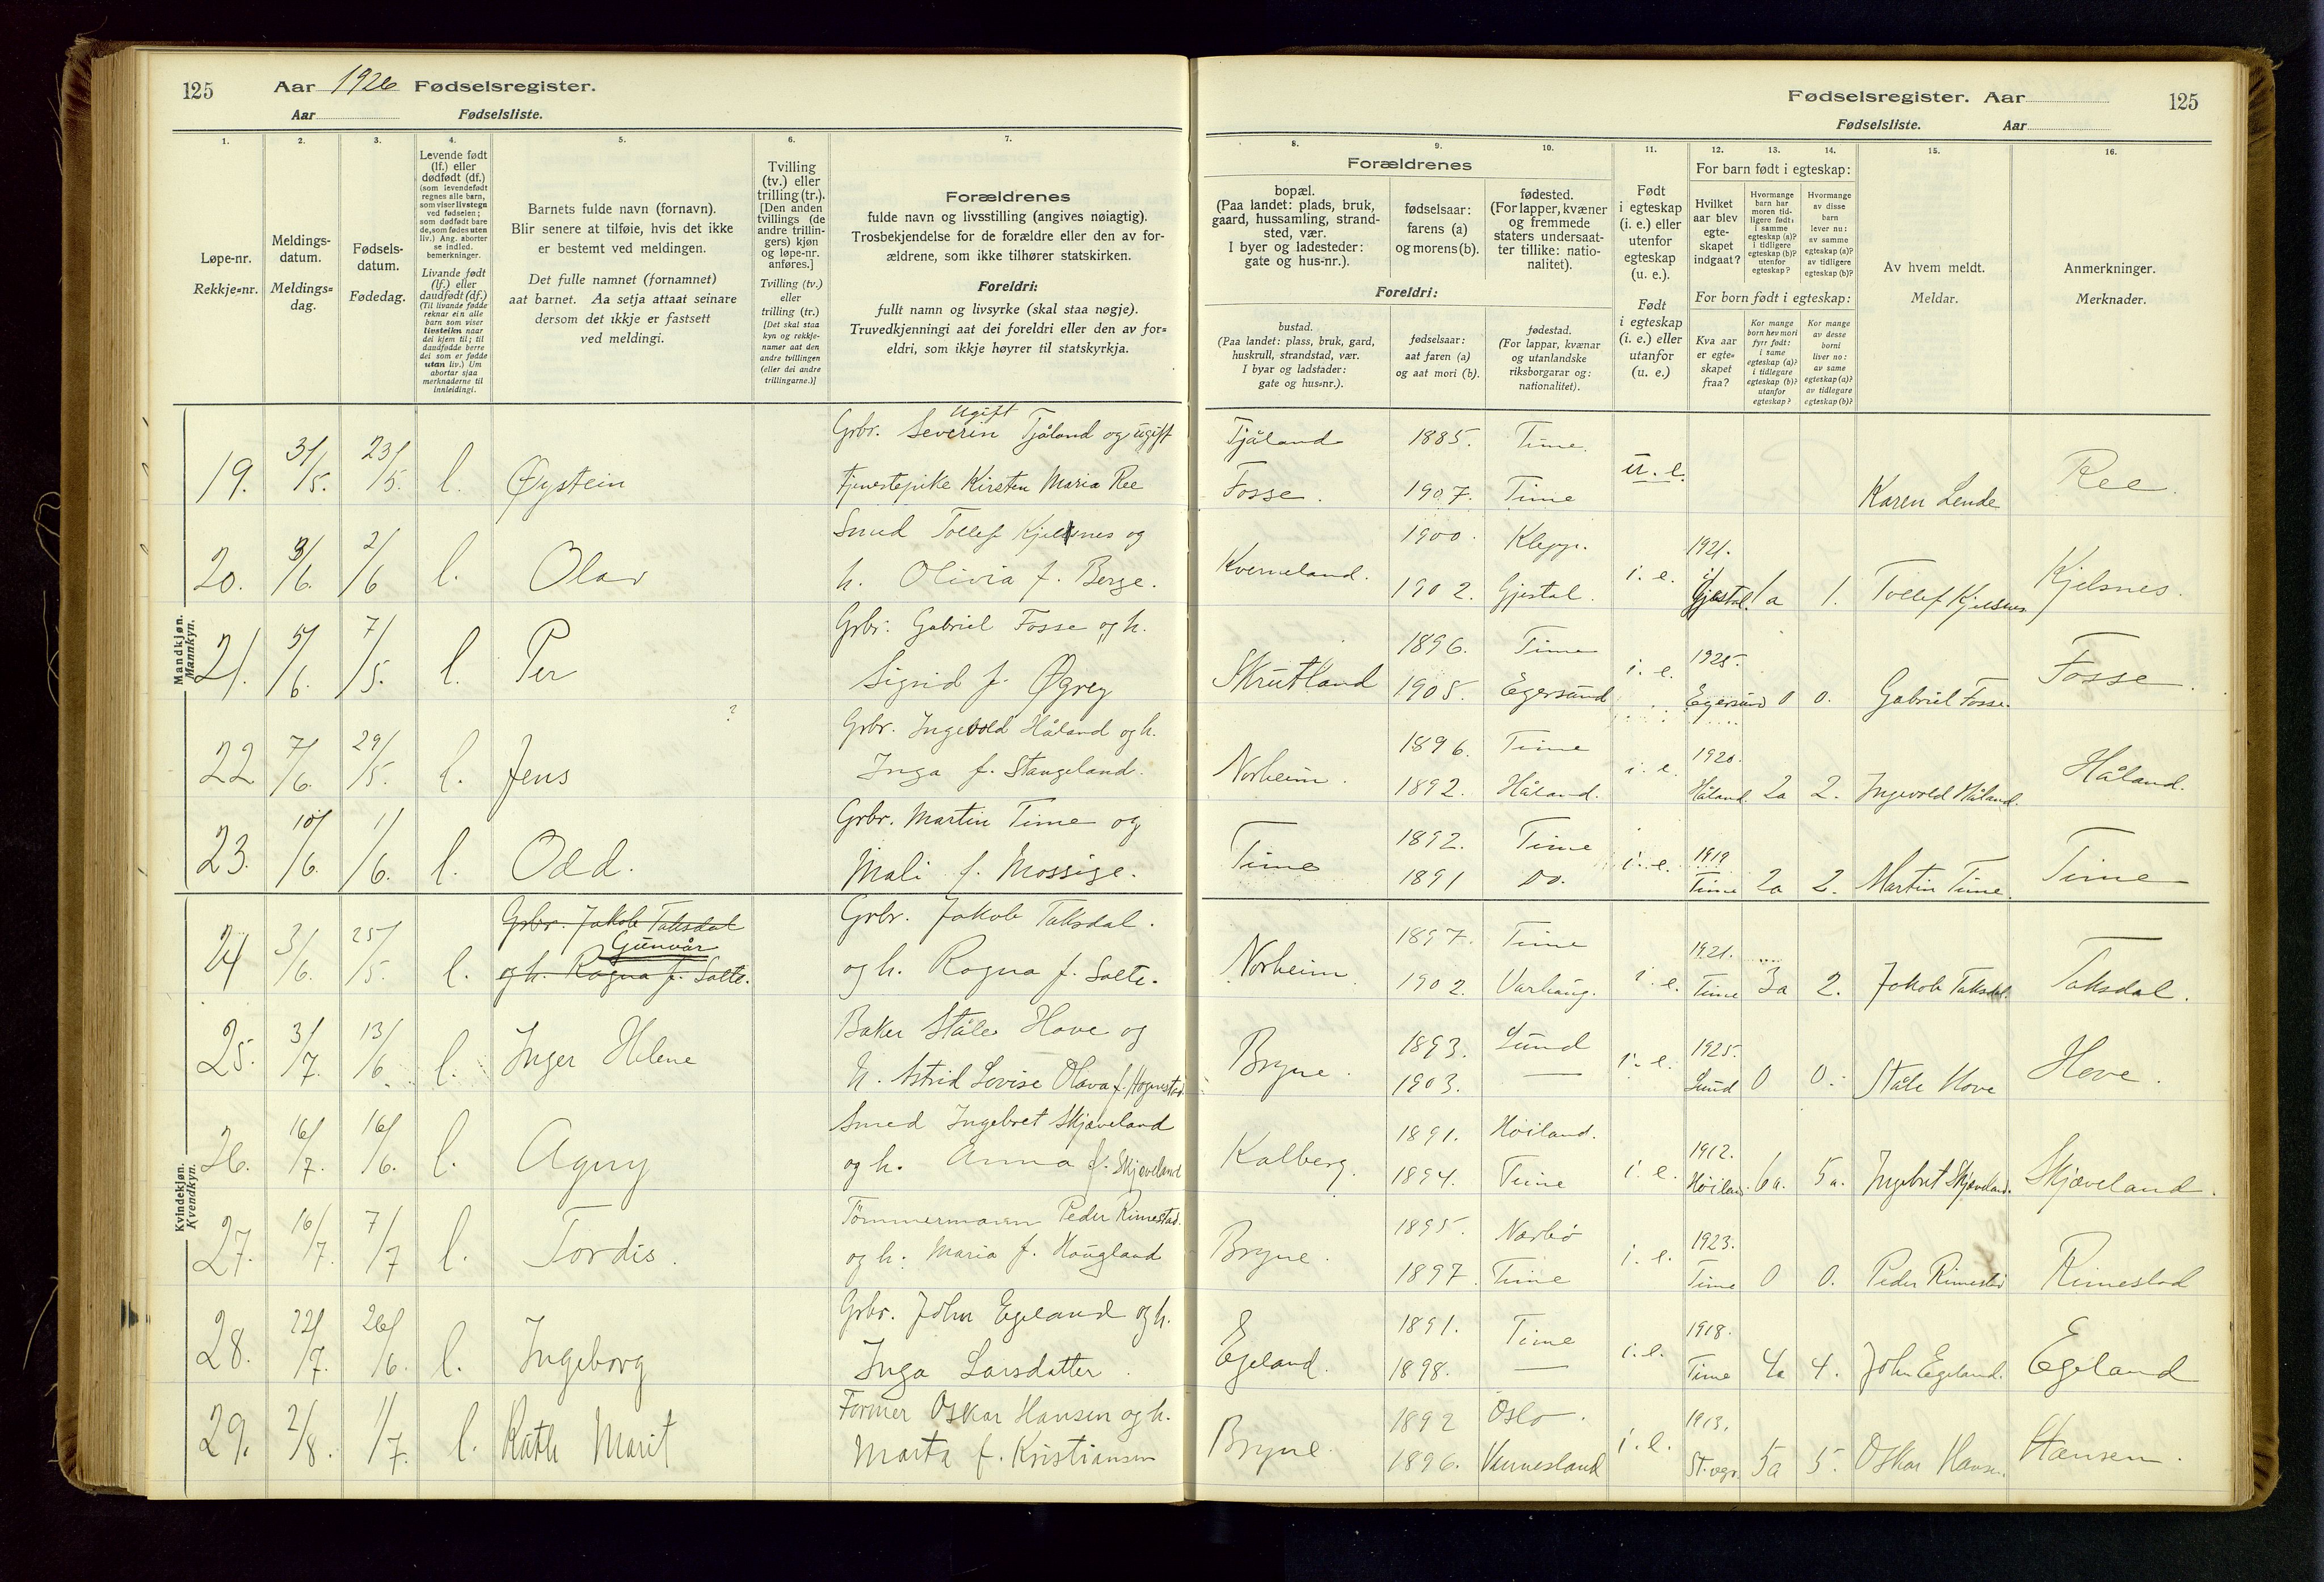 125 Aar 1926 Fødselsregister.
Aar Fødselsliste.
Fødselsregister. Aar 125
Fødselsliste. Aar
1. 2. 3. 4. 5. 6. 7. 8. 9. 10. 11. 12. 13. 14. 15. 16.
Løpe-nr.
Rekkje=nr.
Meldings-
datum.
Meldings=
dag.
Fødsels-
datum.
Fødedag.
Levende født
(lf.) eller
dødfødt (df.)
(som levendefødt
regnes alle barn,
som viser livstegn
ved fødselen;
som dødfødt bare
de, som fødes uten
liv.) Ang. aborter
se indled.
bemerkninger.
Livande født
(lf.) eller
daudfødt (df.)
(Til livande fødde
reknar ein alle
barn som viser
livsteikn naar
dei kjem til; til
daudfødde berre
dei som er fødde
utan liv.) Um
abortar sjaa
merknaderne til
innleidingi.
Barnets fulde navn (fornavn).
Blir senere at tilføie, hvis det ikke
er bestemt ved meldingen.
Det fulle namnet (fornamnet)
aat barnet. Aa setja attaat seinare
dersom det ikkje er fastsett
ved meldingi.
Tvilling
(tv.) eller
trilling (tr.).
[Den anden
tvillings (de
andre trillin-
gers) kjøn
og løpe-nr.
anføres.]
Tvilling (tv.)
eller
trilling (tr.)
[Det skal staa
kyn og rekkje-
numer aat den
andre tvillingen
(eller dei andre
trillingarne.)]
Forældrenes
fulde navn og livsstilling (angives nøiagtig).
Trosbekjendelse for de forældre eller den av for-
ældrene, som ikke tilhører statskirken.
Foreldri:
fullt namn og livsyrke (skal staa nøgje).
Truvedkjenningi aat dei foreldri eller den av for=
eldri, som ikkje høyrer til statskyrkja.
Forældrenes
bopæl.
(Paa landet: plads, bruk,
gaard, hussamling, strand-
sted, vær.
I byer og ladesteder:
gate og hus-nr.).
fødselsaar:
farens (a)
og morens (b).
fødested.
(For lapper, kvæner
og fremmede
staters undersaat-
ter tillike: natio-
nalitet).
Foreldri:
bustad.
(Paa landet: plass, bruk, gard,
huskrull, strandstad, vær.
I byar og ladstader:
gate og hus=nr.).
fødselsaar:
aat faren (a)
og aat mori (b).
fødestad.
(For lappar, kvænar
og utanlandske
riksborgarar og:
nationalitet).
Født
i egteskap
(i. e.) eller
utenfor
egteskap
(u. e.).
Født
i egteskap
(i. e.) eller
utanfor
(u. e.)
For barn født i egteskap:
Hvilket
aar blev
egte-
skapet
indgaat?
Hvormange
barn har
moren tid-
ligere født:
i samme
egteskap (a)?
i tidligere
egteskap (b)?
utenfor
egteskap?
Hvormange
av disse
barn
lever nu:
av samme
egteskap (a)?
av tidligere
egteskap (b)?
For born født i egteskap:
Kva aar
er egte=
skapet
fraa?
Kor mange
born hev mori
fyrr født:
i same
egteskap (a)?
i tidlegare
egteskap (b)?
utanfor
egteskap?
Kor mange
av desse
borni
liver no:
av same
egteskap (a)?
av tidlegare
egteskap (b)?
Av hvem meldt.
Meldar.
Anmerkninger.
Merknader.
Mandkjøn.
Mannkyn.
ugift
Grbr. Severin Tjåland og ugift Tjåland 1885. Time.
19. 31/5. 23/5. l. Øystein tjenestepike Kirsten Maria Ree Fosse. 1907. Time u. e. Karen Lende Ree.
Smed Tollef Kjelsnes og 1900. Klepp. 1921.
20. 3/6. 2/6 l. Olav h. Olivia f. Berge. Kverneland. 1902. Gjestal. i. e. Gjestal. 1a 1. Tollef Kjelsnes Kjelsnes.
Grbr. Gabriel Fosse og h. 1896. Time 1925.
21. 5/6. 7/5. l. Per Sigrid f. Øgrey Skrutland 1905. Egersund i. e. Egersund 0 0. Gabriel Fosse. Fosse.
?
Grbr. Ingevold Håland og h. 1896. Time 1920.
22 7/6. 29/5. l. Jens Inga f. Stangeland. Norheim. 1892. Håland. i. e. Håland. 2a 2. Ingevold Håland. Håland.
Grbr. Martin Time og 1892. Time 1919
23. 10/6. 1/6. l. Odd. Mali f. Mossige. Time 1891 Do. i. e. Time 2a 2. Martin Time Time
Kvindekjøn.
Kvendkyn.
Grbr. Jakob Taksdal Grbr. Jakob Taksdal. 1897. Time 1921.
Gunvår
24 3/6. 25/5. l. og h. Ragna f. Salte. og h. Ragna f. Salte. Norheim. 1902. Varhaug. i. e. Time 3a 2. Jakob Taksdal. Taksdal.
Baker Ståle Hove og 1893. Lund 1925.
25. 3/7. 13/6. l. Inger Helene h. Astrid Lovise Olava f. Hognestad. Bryne. 1903. — i. e. Lund 0 0. Ståle Hove Hove.
Smed Ingebret Skjæveland 1891. Høiland. 1912.
26. 16/7. 16/6. l. Agny og h. Anna f. Skjæveland Kalberg. 1894. Time i. e. Høiland 6a. 5a. Ingebret Skjæveland. Skjæveland.
Tømmermann Peder Rimestad. 1895. Nærbø 1923.
27. 16/7. 7/7 l. Tordis. og h. Maria f. Haugland Bryne. 1897. Time i. e. Time 0 0. Peder Rimestad Rimestad
Grbr. John Egeland og h. 1891. Time 1918.
28. 22/7. 26/6. l. Ingeborg Inga Larsdatter. Egeland. 1898. — i. e. Time 4a 4. John Egeland. Egeland
Former Oskar Hansen og h. 1892 Oslo. 1913.
29. 2/8. 1/7. l. Ruth Marit Marta f. Kristiansen Bryne. 1896. i. e. 5a 5. Oskar Hansen. Hansen.